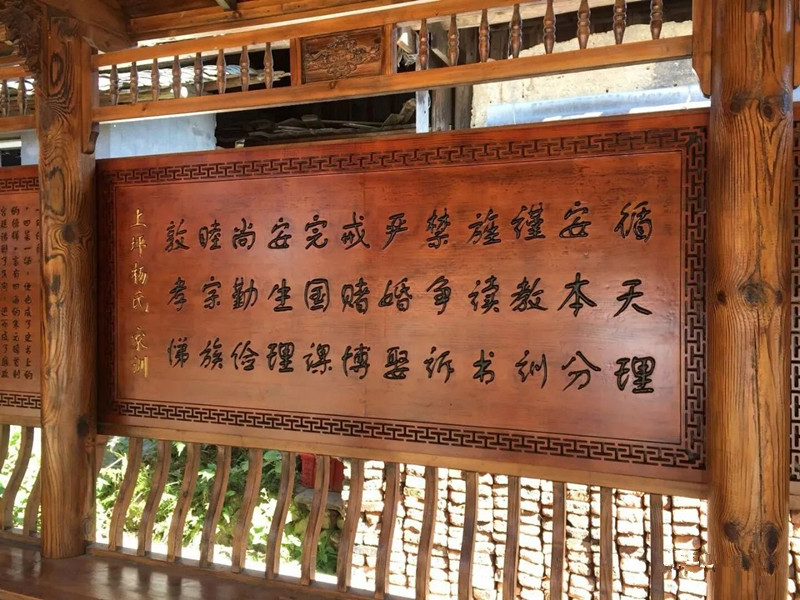 循天理
安本分
谨教训
旌读书
禁争诉
严婚娶
戒赌博
完国课
安生理
尚勤俭
睦宗族
敦孝悌
上坪杨氏家训